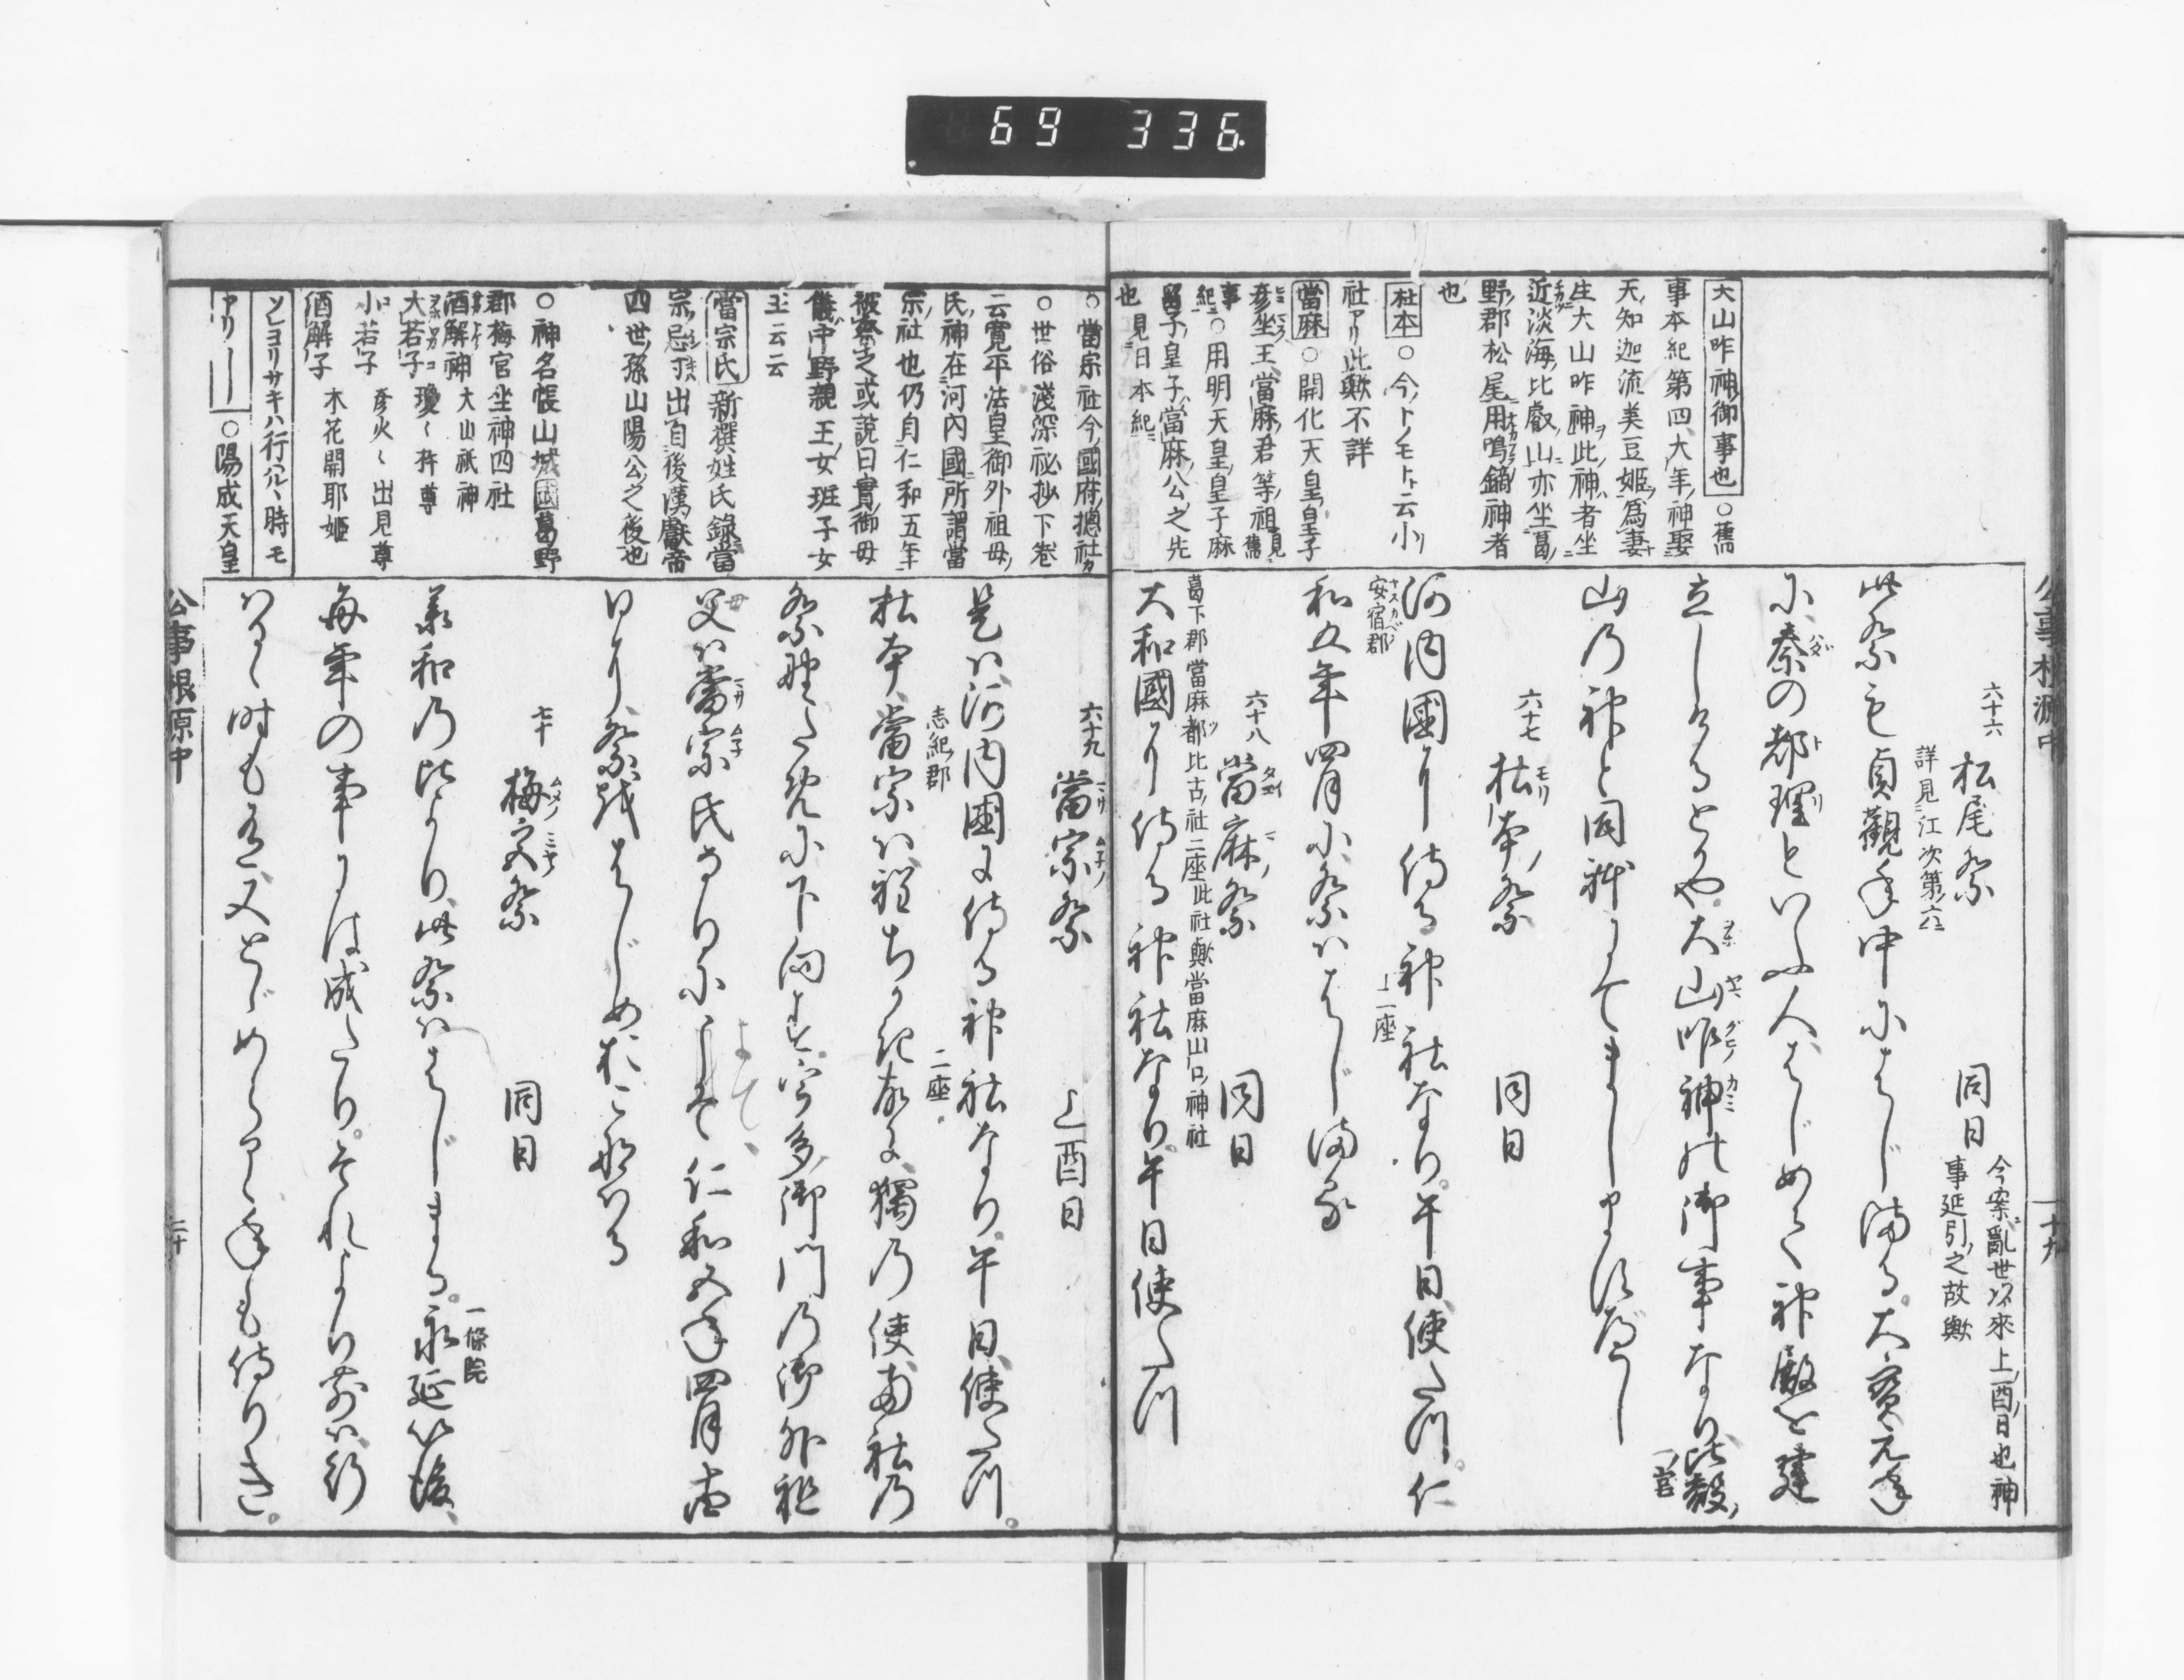 69 336
公事根源中
十九
大山咋神御事也○舊
事本紀第四大年神娶
天知迦流美豆姫爲妻
生大山咋神此神者坐
近淡海比叡山亦坐葛
野郡松尾用鳴鏑神者
也
杜本○今トノモトヽ云小
社アリ此歟不詳
當麻○開化天皇皇子
彦坐王當麻君等祖見舊
事紀○用明天皇皇子麻
呂子皇子當麻公之先
也見日本紀
六十六 松尾祭 同日 今案亂世以來上酉日也神事延引之故歟
詳見江次第六
此祭も貞觀年中にはじまる。大寶元年
に、秦の都理といふ人はじめて神殿を建
立しけるとかや。大山咋神の御事なり。比叡
山の神と同躰にてましますべし
六十七 杜本祭 同日
河内國に侍る神社なり。午日使たつ。仁
安宿郡
一座
和五年四月に、祭ははじまる
六十八 當麻祭 同日
葛下郡當麻都比古社二座此社歟當麻山口神社
大和國に侍る神社なり。午日使たつ
○當宗社今國府摠社
○世俗淺深秘抄下卷
云寛平法皇御外祖母
氏神在河内國所謂當
宗社也仍自仁和五年
被祭之或説曰實御母
儀中野親王女班子女
王云云
當宗氏新撰姓氏錄當
宗忌寸出自後漢獻帝
四世孫山陽公之後也
○神名帳山城國葛野
郡梅宮坐神四社
酒解神大山祇神
大若子瓊々杵尊
小若子彦火々出見尊
酒解子木花開耶姫
ソレヨリサキハ行ハルヽ時モ
アリ――○陽成天皇
六十九 當宗祭 上酉日
是は、河内國に侍る神社なり。午日、使たつ。
志紀郡
二座
杜本、當宗は、程ちかき故に、獨の使両社の
祭
下向す。宇多御門の御外祖
母は當宗氏なりによりて、仁和五年四月
より、祭をはじめおこなはる
七十 梅宮祭 同日
承和の比より、此祭ははじまる。永延以後、
一條院
毎年の事には成たり。それより前は行
はるゝ時もあり、又とゞめらるゝ年も侍りき。
公事根原中
二十